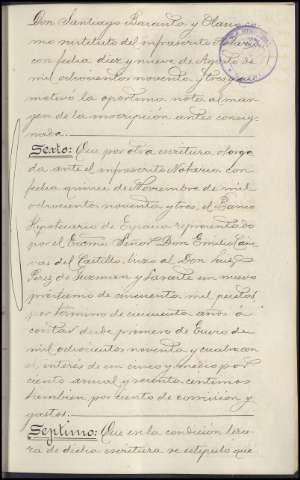 Don Santiago Barranta y Olano, co-
mo sustituto del infrascrito Notario
con fecha diez y nueve de Agosto de
mil ochocientos noventa y tres que
motivó la oportuna nota al mar-
gen de la inscripción antes consig-
nada.
Sexto: Que por otra escritura otorga-
da ante el infrascrito Notario con
fecha quince de Noviembre de mil
ochocientos noventa y tres, el Banco
Hipotecario de España representado
por el Excmo Señor Don Emilio Cáno-
vas del Castillo, hizo al Don Luis
Perez de Guzman y Lasarte un nuevo
préstamo de cincuenta mil pesetas,
por término de cincuenta años á
contar desde primero de Enero de
mil ochocientos noventa y cuatro con
el interés de un cinco y medio por
ciento anual y sesenta centimos
tambien por ciento de comision y
gastos.
Septimo: Que en la condición terce-
ra de dicha escritura se estipuló que